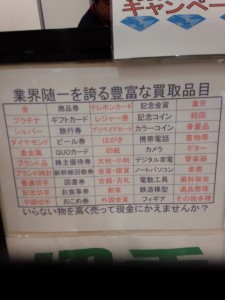 キャンペー
業界随一を誇る豊富な買取品目
金 商品券 テレホンカード 記念金貨 象牙
プラチナ ギフトカード レジャー券 記念コイン 絵画
シルバー 旅行券 プリペイドカード カラーコイン 骨董品
ダイヤモンド ビール券 はがき 携帯電話 着物帯
貴金属 QUOカード 印紙 カメラ ギター
ブランド品 株主優待券 大判・小判 デジタル家電 管楽器
ブランド時計 新幹線回数券 金貨・銀貨 ノートパソコン 金歯
普通切手 図書券 古銭・古札 電動工具
記念切手 お食事券 鉄道模型 遺品整理
中国切手 おこめ券 外国金貨 フィギア その他多種
いらない物を高く売って現金にかえませんか？